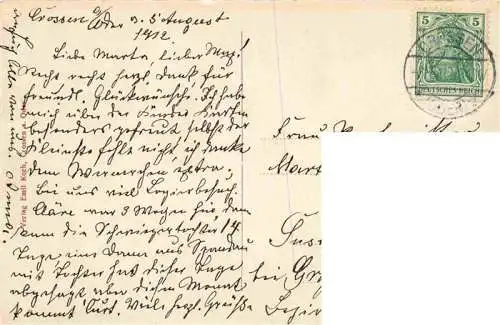 Crossen a/Oder d. 5 August
1912
Liebe Marta, lieber Max!
Recht recht herzl. Dank für
freundl. Glückwünsche. Ich habe
mich über der Kindes Karten
besonders gefreut selbst der
Kleinste fehlte nicht, ich danke
dem
extra.
Bei uns viel Logierbesuch.
Cläre war 3 Wochen hier, dann
kam die Schwiegertochter 14
Tage eine Dame aus Spandau
mit Tochter hat diese Tage
abgesagt aber diesen Monat
kommt Curt. Viele herzl. Grüße
von
Verlag Emil Koch, Crossen a. Oder
5
5
DEUTSCHES REICH
CROSSEN
Frau
Mart
bei